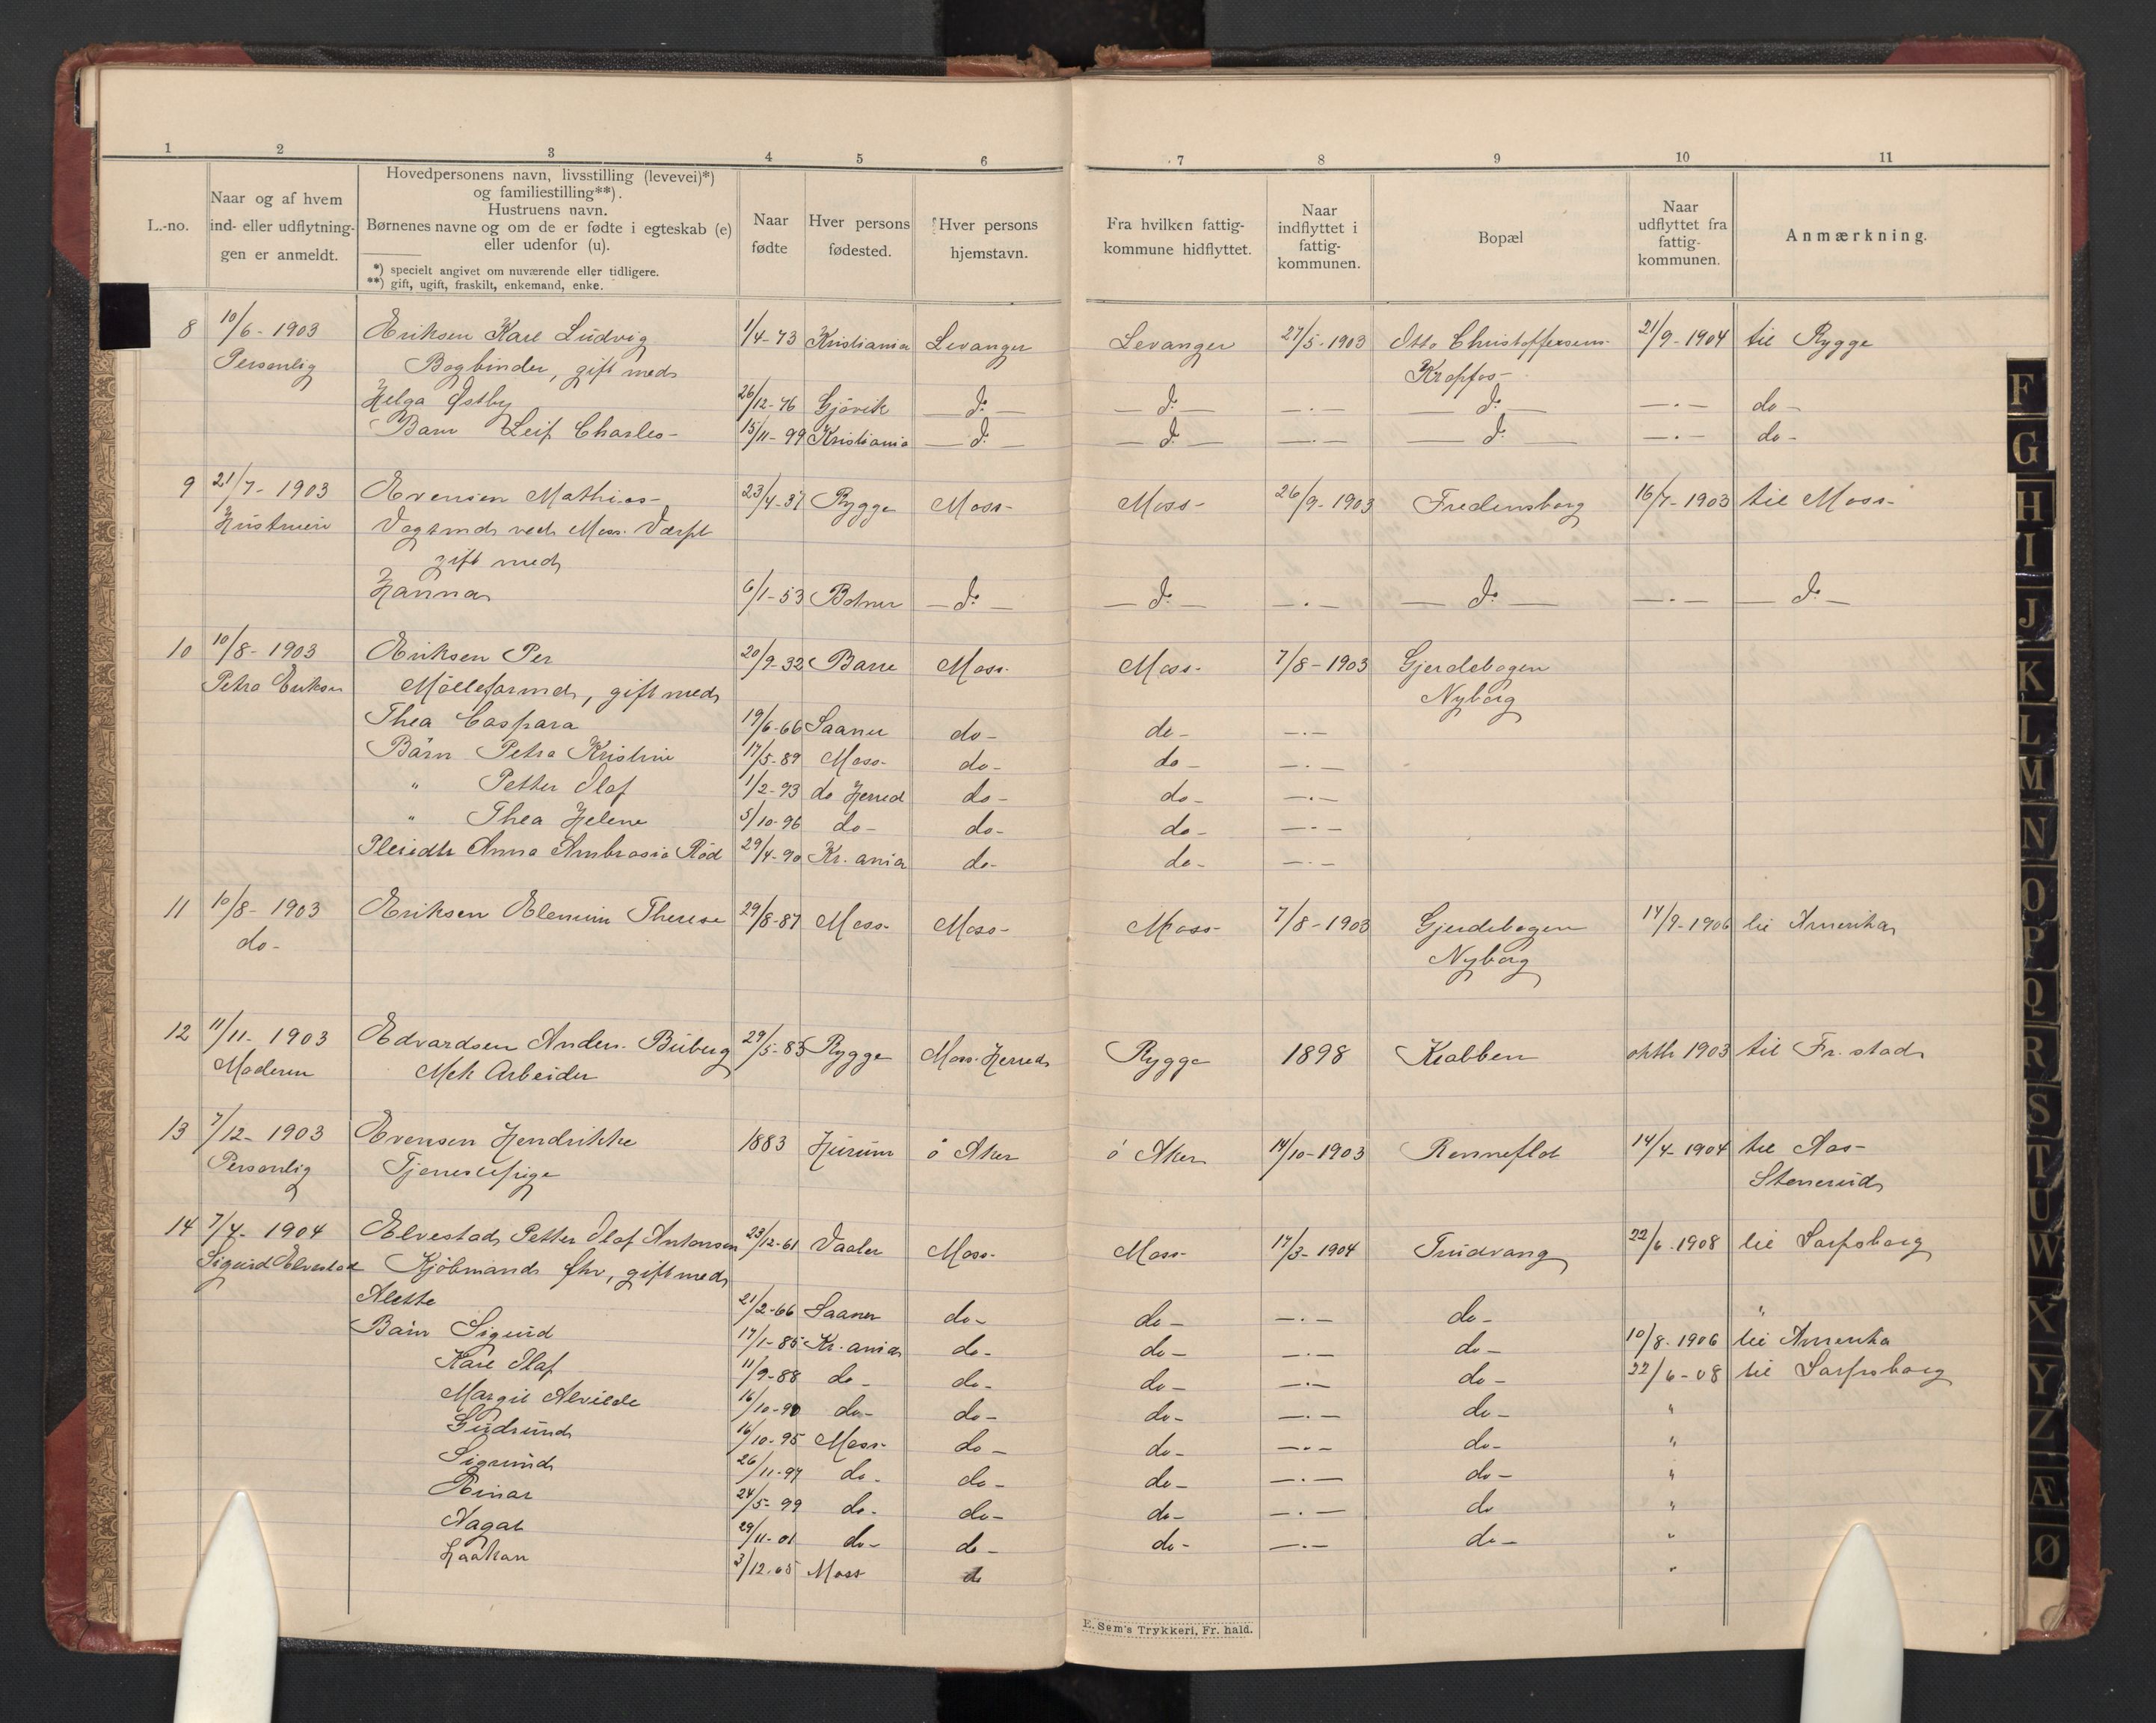 1 2 3 4 5 6 7 8 9 10 11
L.-no.
Naar og af hvem
ind- eller udflytnin-
gen er anmeldt.
Hovedpersonens navn, livsstilling (levevei)*)
og familiestilling**).
Hustruens navn.
Børnenes navne og om de er fødte i egteskab (e)
eller udenfor (u).
*) specielt angivet om nuværende eller tidligere.
**) gift, ugift, fraskilt, enkemand, enke.
Naar
fødte
Hver persons
fødested.
Hver persons
hjemstavn.
Fra hvilken fattig-
kommune hidflyttet.
Naar
indflyttet i
fattig-
kommunen.
Bopæl
Naar
udflyttet fra
fattig-
kommunen.
Anmærkning.
8 10/6 - 1903 Eriksen Karl Ludvig 1/4-73 Kristiania Levanger Levanger 27/5-1903 Otto Christoffersens- 21/9-1904 til Rygge
Personlig Bogbinder, gift med Kropfos-
Helga Østby 26/12-76 Gjövik — do — — do — —.— — do — —.— do-
Barn Leif Charles- 15/11-99 Kristiania — do — — do — —.— — do — —.— do-
9 21/7 - 1903 Evensen Mathias- 23/4-37 Rygge Moss- Moss- 26/9-1903 Fredensborg 16/7-1903 til Moss-
Hustruen Vagtmd ved Moss. Værft
gift med
Hanna 6/1-53 Botner — do — — do — —.— — do — —.— — do —
10 10/8 - 1903 Eriksen Per 20/9-32 Barre Moss- Moss- 7/8-1903 Gjerdebogen
Petra Eriksen Mølleformd, gift med Nyborg
Thea Caspara 19/6-66 Saaner do- do- —.—
Barn Petra Kristine 17/5-89 Moss- do- do- —.—
" Petter Olaf 1/2-93 do Herred do- do- —.—
" Thea Helene 5/10-96 do- do- do- —.—
Pleiedtr Anna Ambrosia Rød 29/4-90 Kr.ania do- do- —.—
11 10/8 - 1903 Eriksen Elenine Therese 29/8-87 Moss- Moss- Moss- 7/8-1903 Gjerdebogen 14/9-1906 til Amerika
do- Nyborg
12 11/11 - 1903 Edvardsen Anders. Buberg 29/5-85 Rygge Moss. Herred Rygge 1898 Krabben oktb 1903 til Fr.stad
Moderen Mek Arbeider
13 7/12 - 1903 Evensen Hendrikke 1883 Hurum ö Aker ö Aker 14/10-1903 Renneflot 14/4-1904 til Aas-
Personlig Tjenestepige Stenerud
14 7/4 - 1904 Elvestad Petter Olaf Antonsen 23/12-61 Vaaler Moss- Moss- 17/3-1904 Trudvang 22/6-1908 til Sarpsborg
Sigurd Elvestad Kjöbmand fhv, gift med
Alette 21/2-66 Saaner do- do- —.— do- "
Barn Sigurd 17/1-85 Kr.ania do- do- —.— do- 10/8-1906 til Amerika
Karl Olaf 11/9-88 do- do- do- —.— do- 22/6-08 til Sarpsborg
Margit Alvilde 16/10-90 do- do- do- —.— do- "
Gudrund 16/10-95 Moss- do- do- —.— do- "
Sigrund 26/11-97 do- do- do- —.— do- "
Einar 24/5-99 do- do- do- —.— do "
Aagot 29/11-01 do- do- do- —.— do- "
Haakon 3/12-05 Moss do "
E. Sem's Trykkeri, Fr. hald.
F
G
H
I
J
K
L
M
N
O
P
Q
R
S
T
U
W
X
Y
Z
Æ
Ø